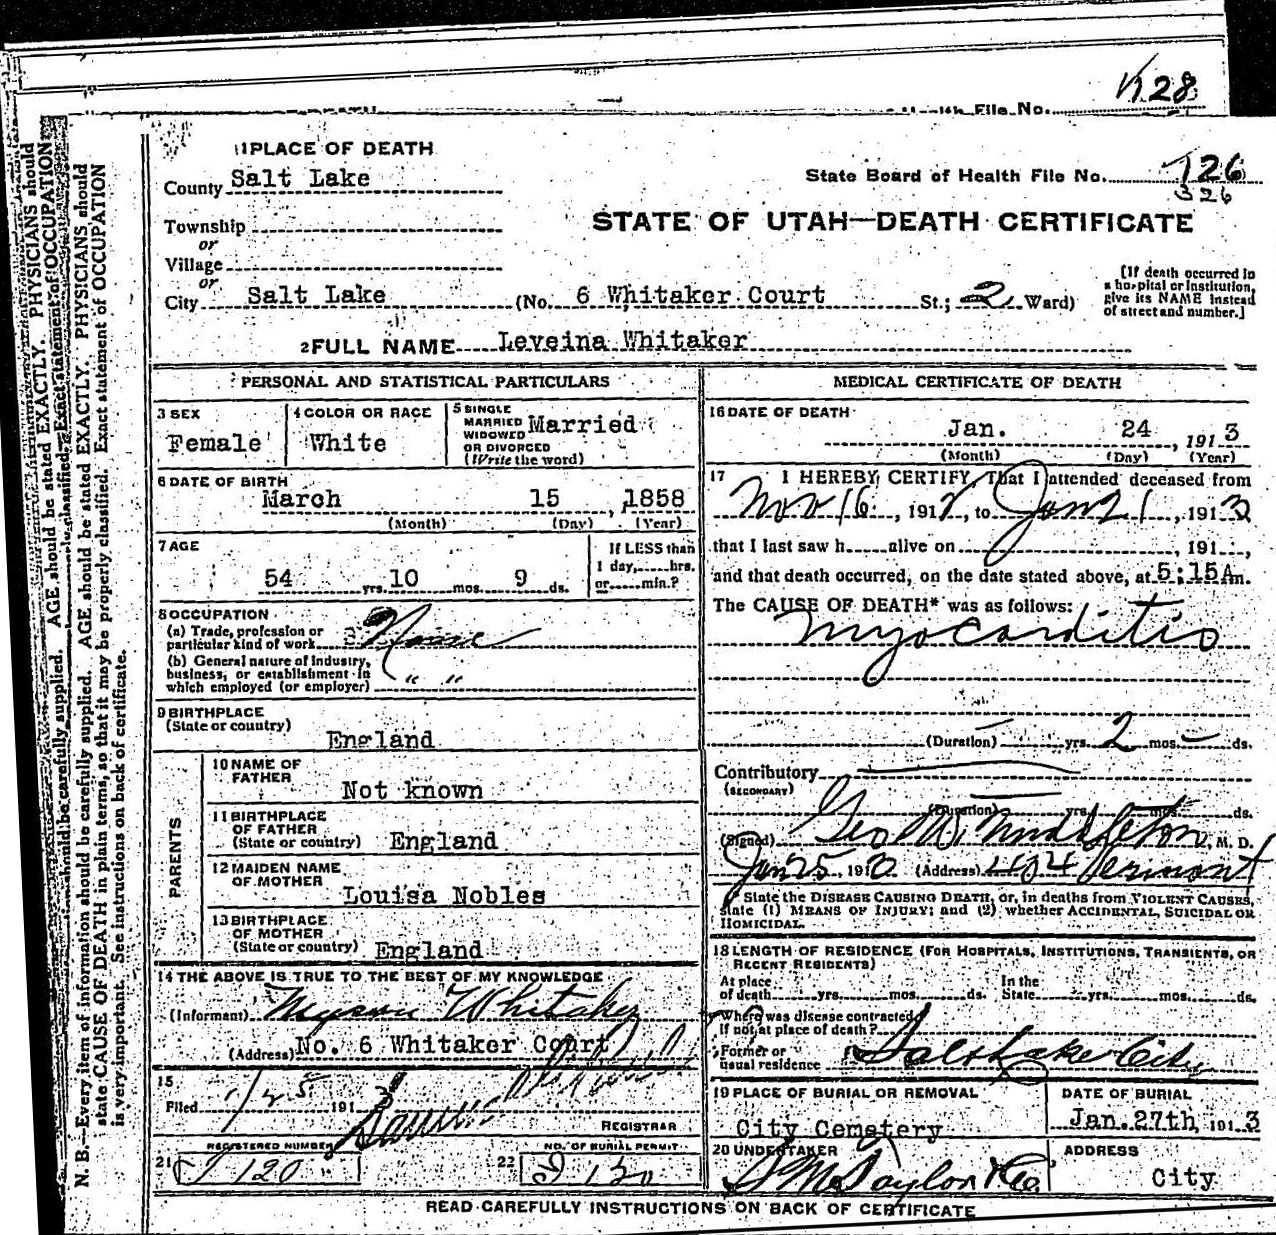 1128
Health File No.
1 PLACE OF DEATH
County Salt Lake
State Board of Health File No. 126
326
Township
or
Village
or
STATE OF UTAH—DEATH CERTIFICATE
City Salt Lake (No. 6 Whitaker Court St.; 2 Ward)
[If death occurred in
a hospital or institution,
give its NAME instead
of street and number.]
2 FULL NAME Leveina Whitaker
PERSONAL AND STATISTICAL PARTICULARS
3 SEX
Female
4 COLOR OR RACE
White
5 SINGLE
MARRIED
WIDOWED
OR DIVORCED
(Write the word)
Married
6 DATE OF BIRTH
March 15, 1858
(Month) (Day) (Year)
7 AGE
54 yrs. 10 mos. 9 ds.
If LESS than
1 day, hrs.
or min.?
8 OCCUPATION
(a) Trade, profession or
particular kind of work None
(b) General nature of industry,
business, or establishment in
which employed (or employer) " "
9 BIRTHPLACE
(State or country)
England
PARENTS
10 NAME OF
FATHER
Not known
11 BIRTHPLACE
OF FATHER
(State or country) England
12 MAIDEN NAME
OF MOTHER
Louisa Nobles
13 BIRTHPLACE
OF MOTHER
(State or country) England
14 THE ABOVE IS TRUE TO THE BEST OF MY KNOWLEDGE
(Informant) Myson Whitaker
(Address) No. 6 Whitaker Court
15
Filed 1/25 1913
REGISTRAR
REGISTERED NUMBER
21 120
NO. OF BURIAL PERMIT
22 130
MEDICAL CERTIFICATE OF DEATH
16 DATE OF DEATH
Jan. 24, 1913
(Month) (Day) (Year)
17 I HEREBY CERTIFY, That I attended deceased from
Nov 16, 1912, to Jan 21, 1913
that I last saw h alive on , 191 ,
and that death occurred, on the date stated above, at 5:15A m.
The CAUSE OF DEATH* was as follows:
Myocarditis
(Duration) yrs. 2 mos. — ds.
Contributory
(SECONDARY)
(Duration) yrs. mos. ds.
(Signed) Geo W. Middleton, M. D.
Jan 25, 1913 (Address) 404 Vermont
State the DISEASE CAUSING DEATH, or, in deaths from VIOLENT CAUSES,
state (1) MEANS OF INJURY; and (2) whether ACCIDENTAL, SUICIDAL OR
HOMICIDAL.
18 LENGTH OF RESIDENCE (FOR HOSPITALS, INSTITUTIONS, TRANSIENTS, OR
RECENT RESIDENTS)
At place
of death yrs. mos. ds.
In the
State yrs. mos. ds.
Where was disease contracted
if not at place of death?
Former or
usual residence Salt Lake City
19 PLACE OF BURIAL OR REMOVAL
City Cemetery
DATE OF BURIAL
Jan. 27th, 1913
20 UNDERTAKER
S M Taylor & Co.
ADDRESS
City
READ CAREFULLY INSTRUCTIONS ON BACK OF CERTIFICATE
N. B.—Every item of information should be carefully supplied. AGE should be stated EXACTLY. PHYSICIANS should
state CAUSE OF DEATH in plain terms, so that it may be properly classified. Exact statement of OCCUPATION
is very important. See instructions on back of certificate.